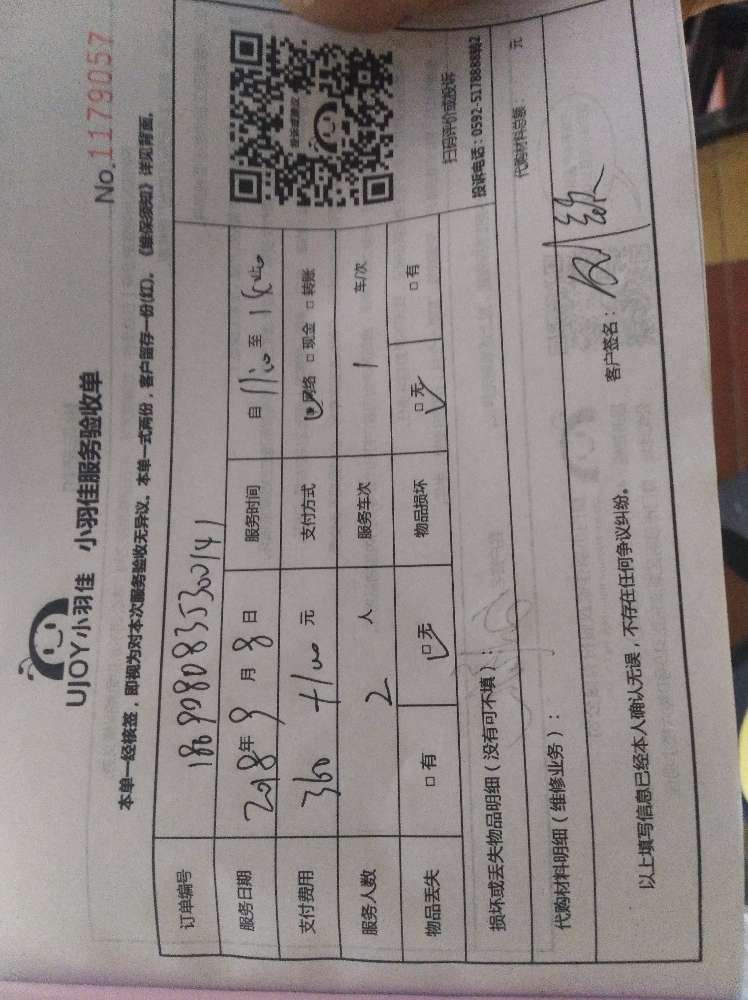 UJOY小羽佳 小羽佳服务验收单
No.1179057
本单一经核签，即视为对本次服务验收无异议。本单一式两份，客户留存一份(红)。《维保须知》详见背面。
订单编号
服务日期 2018年9月8日 服务时间 自 11:00 至
支付费用 360+100 元 支付方式 网络 □ 现金 □ 转账
服务人数 2 人 服务车次 1 车/次
物品丢失 □ 有 □ 无 物品损坏 □ 无 □ 有
投诉或建议
扫码评价或投诉
投诉电话：0592-5178888转2
损坏或丢失物品明细（没有可不填）：
代购材料明细（维修业务）： 代购材料总额： 元
以上填写信息已经本人确认无误，不存在任何争议纠纷。 客户签名：